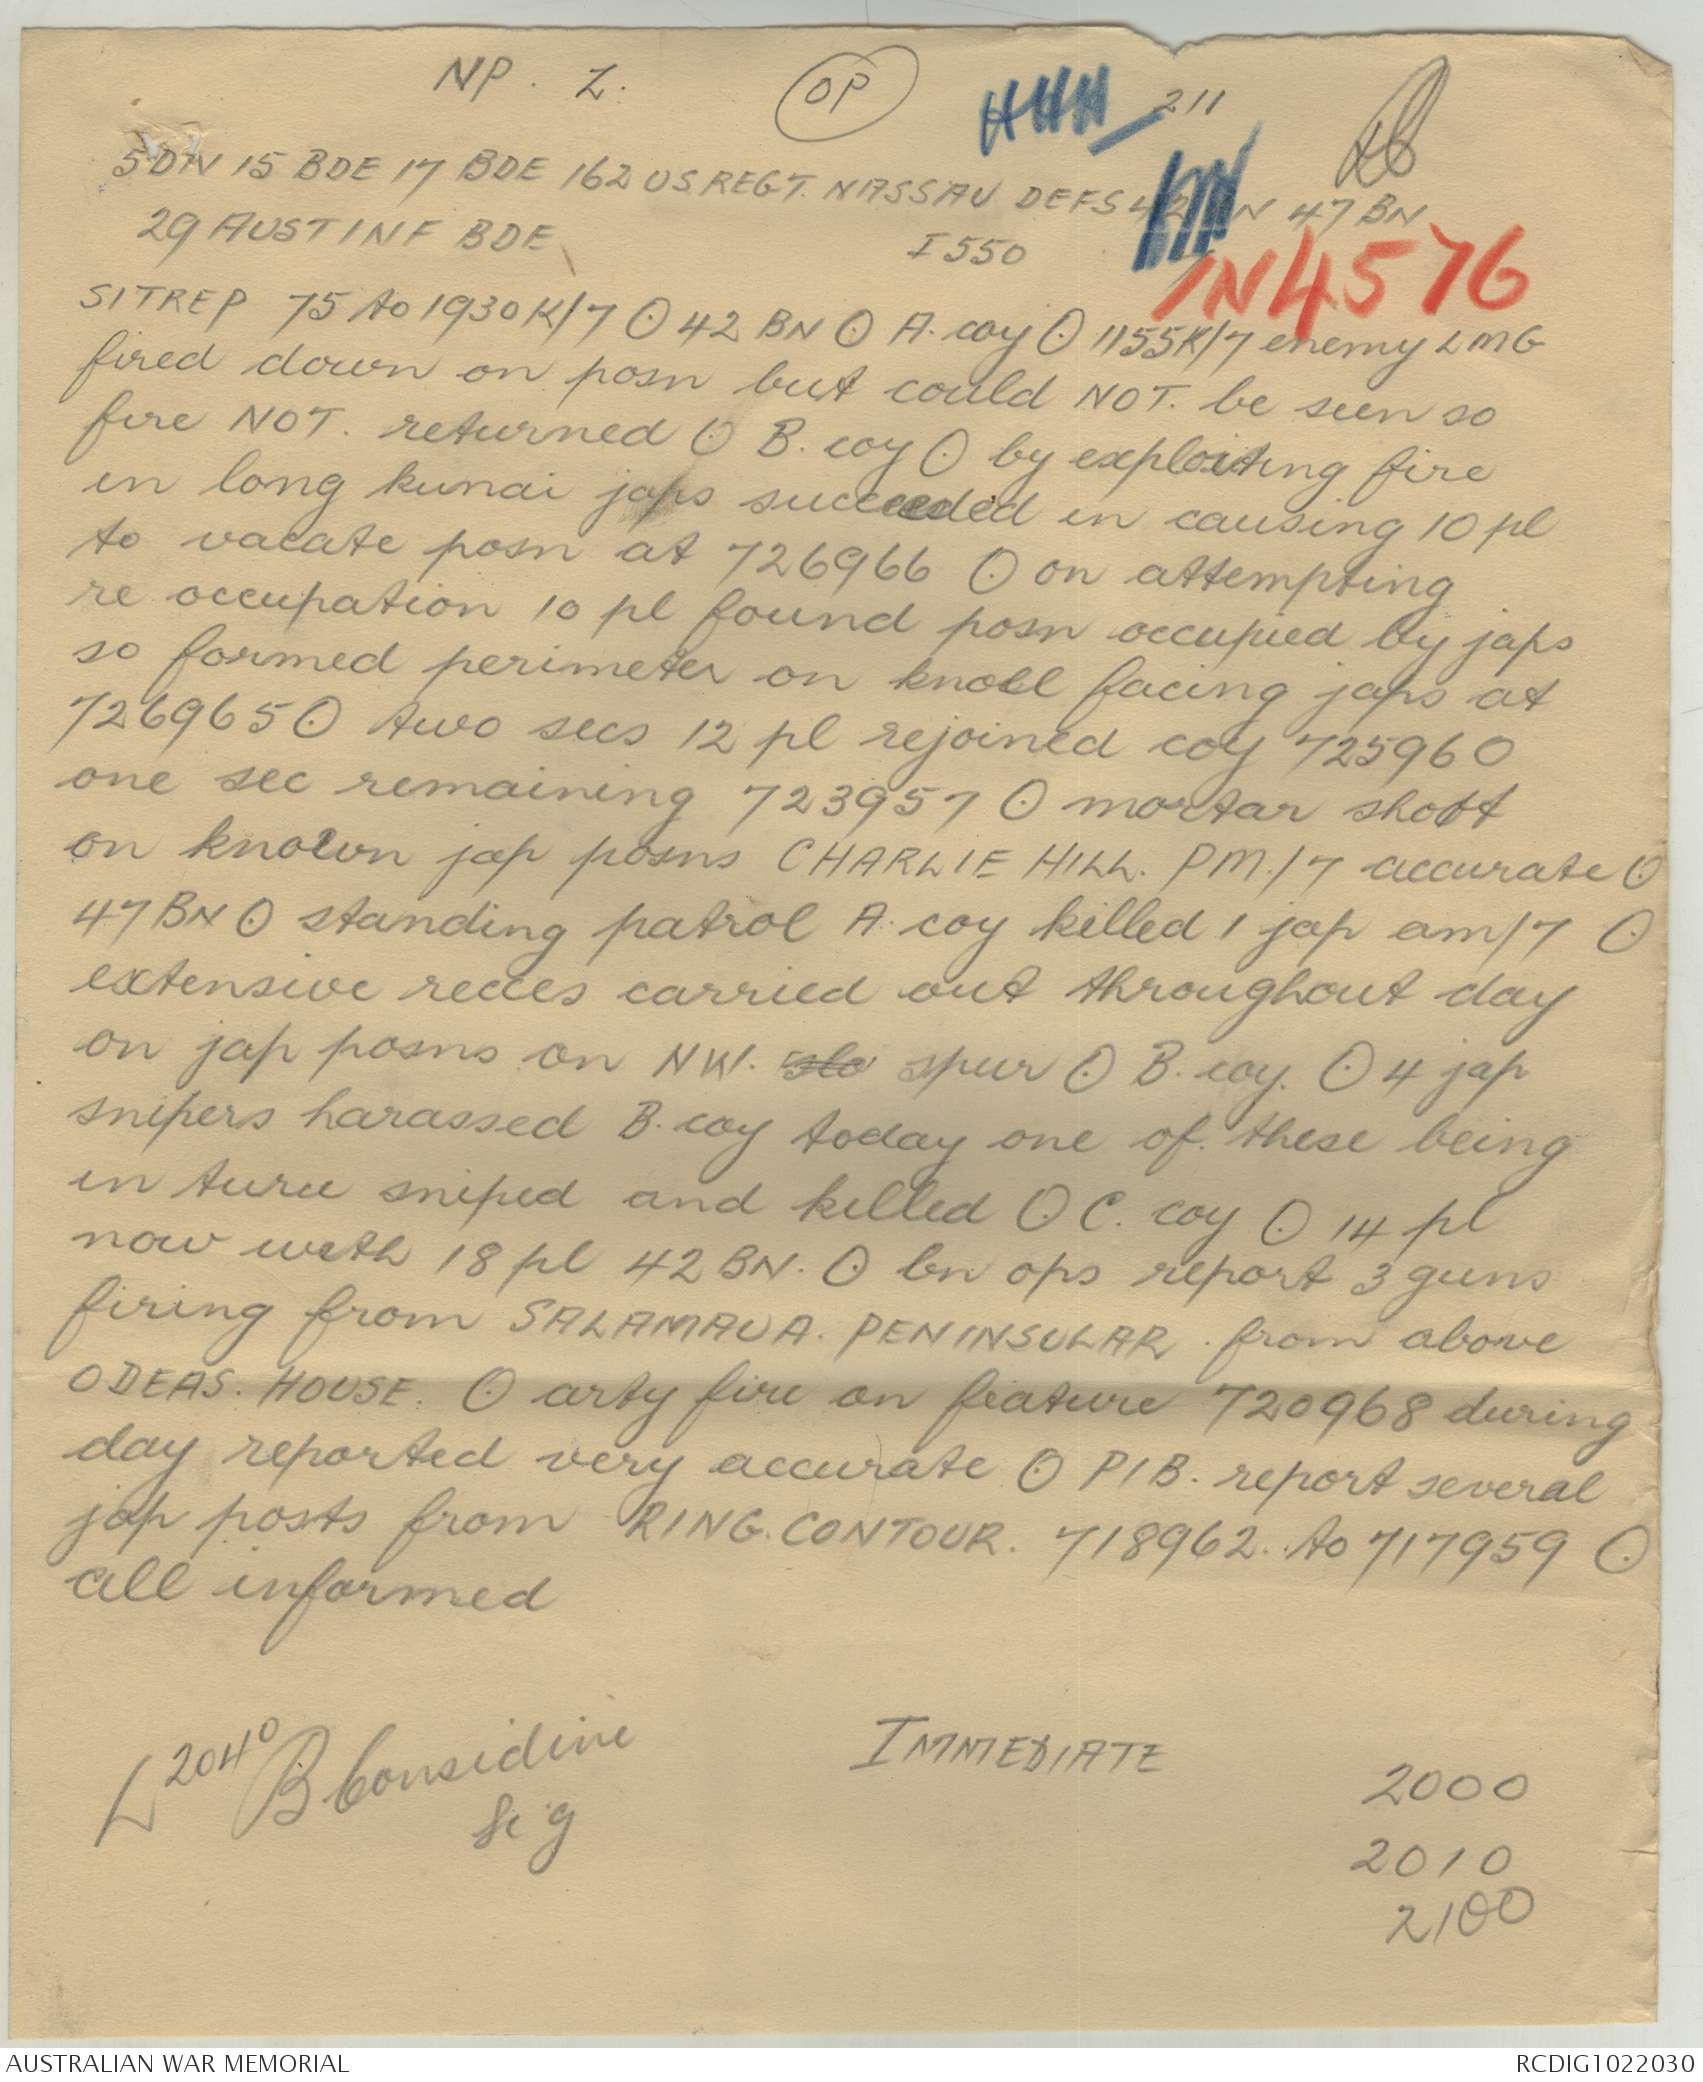 NP. Z. OP 211
5 DIV 15 BDE 17 BDE 162 US REGT. NASSAU DEFS 42 BN 47 BN
29 AUST INF BDE I 550
IN4576
SITREP 75 to 1930K/7 ⊙ 42 BN ⊙ A. coy ⊙ 1155K/7 enemy LMG
fired down on posn but could NOT. be seen so
fire NOT. returned ⊙ B. coy ⊙ by exploiting fire
in long kunai japs succeeded in causing 10 pl
to vacate posn at 726966 ⊙ on attempting
re occupation 10 pl found posn occupied by japs
so formed perimeter on knoll facing japs at
726965 ⊙ two secs 12 pl rejoined coy 725960
one sec remaining 723957 ⊙ mortar shoot
on known jap posns CHARLIE HILL. PM./7 accurate ⊙
47 BN ⊙ standing patrol A. coy killed 1 jap am/7 ⊙
extensive recces carried out throughout day
on jap posns on NW. slo spur ⊙ B. coy. ⊙ 4 jap
snipers harassed B. coy today one of. these being
in turn sniped and killed ⊙ C. coy ⊙ 14 pl
now with 18 pl 42 BN. ⊙ bn ops report 3 guns
firing from SALAMAUA. PENINSULAR. from above
ODEAS. HOUSE. ⊙ arty fire on feature 720968 during
day reported very accurate ⊙ PIB. report several
jap posts from RING. CONTOUR. 718962. to 717959 ⊙
all informed
L 2040 B Considine
Sig
IMMEDIATE
2000
2010
2100
AUSTRALIAN WAR MEMORIAL RCDIG1022030